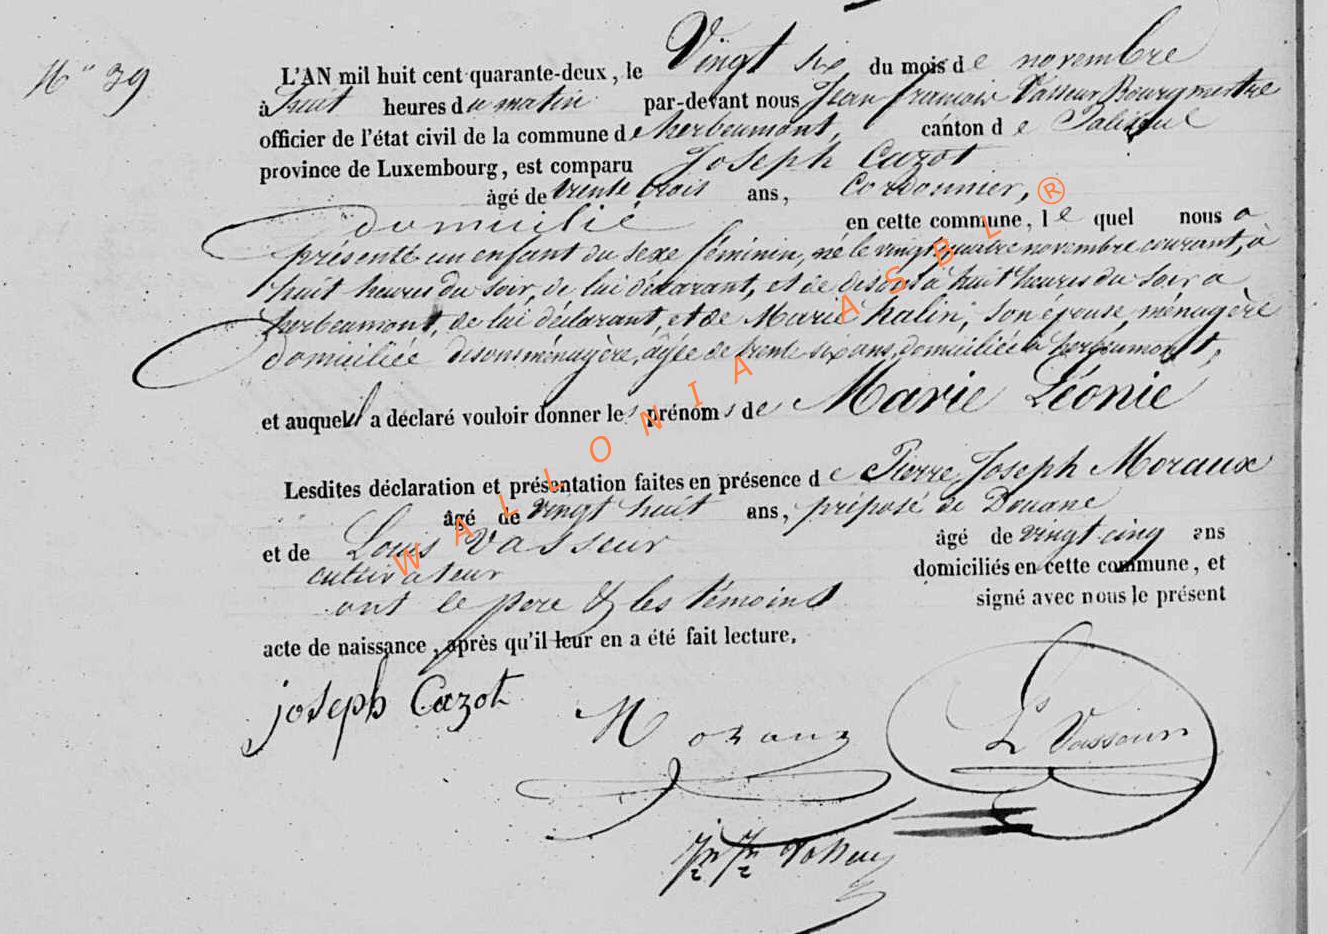 N° 39
L'AN mil huit cent quarante-deux, le Vingt six du mois de novembre
à huit heures du matin par-devant nous Jean françois Vasseur Bourgmestre
officier de l'état civil de la commune de herbeumont, canton de Paliseul
province de Luxembourg, est comparu Joseph Cazot
âgé de trente trois ans, Cordonnier,
domicilié en cette commune, le quel nous a
présenté un enfant du sexe féminin, né le vingt quatre novembre courant, à
huit heures du soir, de lui déclarant, et de disons à huit heures du soir a
herbeumont, de lui déclarant, et de Marie halin, son épouse, ménagère
domiciliée disons ménagère, âgée de trente six ans, domiciliée à herbeumont,
et auquel il a déclaré vouloir donner les prénoms de Marie Léonie
Lesdites déclaration et présentation faites en présence de Pierre Joseph Moraux
âgé de vingt huit ans, préposé de Douane
et de Louis Vasseur âgé de vingt cinq ans
cultivateur domiciliés en cette commune, et
ont le père & les témoins signé avec nous le présent
acte de naissance, après qu'il leur en a été fait lecture.
joseph Cazot
Moraux
Ls Vasseur
WALLONIA ASBL ®